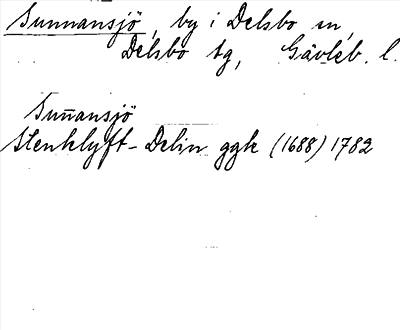 Sunnansjö, by i Delsbo sn,
Delsbo tg, Gävleb. l.
Sun̄ansjö
Stenklyft-Delin ggk (1688) 1782